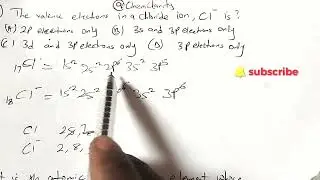 @Chemclarity
The valence electrons in a chloride ion, Cl⁻ is?
(A) 2p electrons only (B) 3s and 3p electrons only
(C) 3d and 3p electrons only (D) 3p electrons only
₁₇Cl = 1s² 2s² 2p⁶ 3s² 3p⁵
subscribe
₁₈Cl⁻ = 1s² 2s² 3s² 3p⁶
Cl 2,8,
Cl⁻ 2, 8,